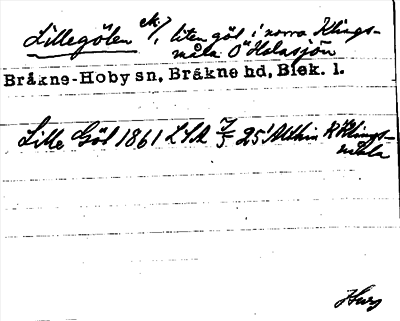 Lillegölen ek/, liten göl i norra Klings-
måla Ö Halasjön
Bräkne-Hoby sn, Bräkne hd, Blek. l.
Lille Göl 1861 LSA 7/5 25 Utskin K Klings-
måla